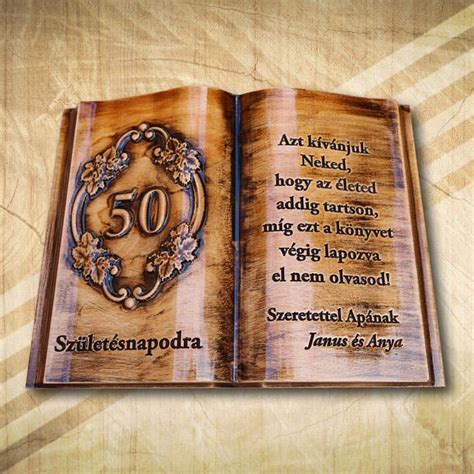 50
Születésnapodra
Azt kívánjuk
Neked,
hogy az életed
addig tartson,
míg ezt a könyvet
végig lapozva
el nem olvasod!
Szeretettel Apának
Janus és Anya